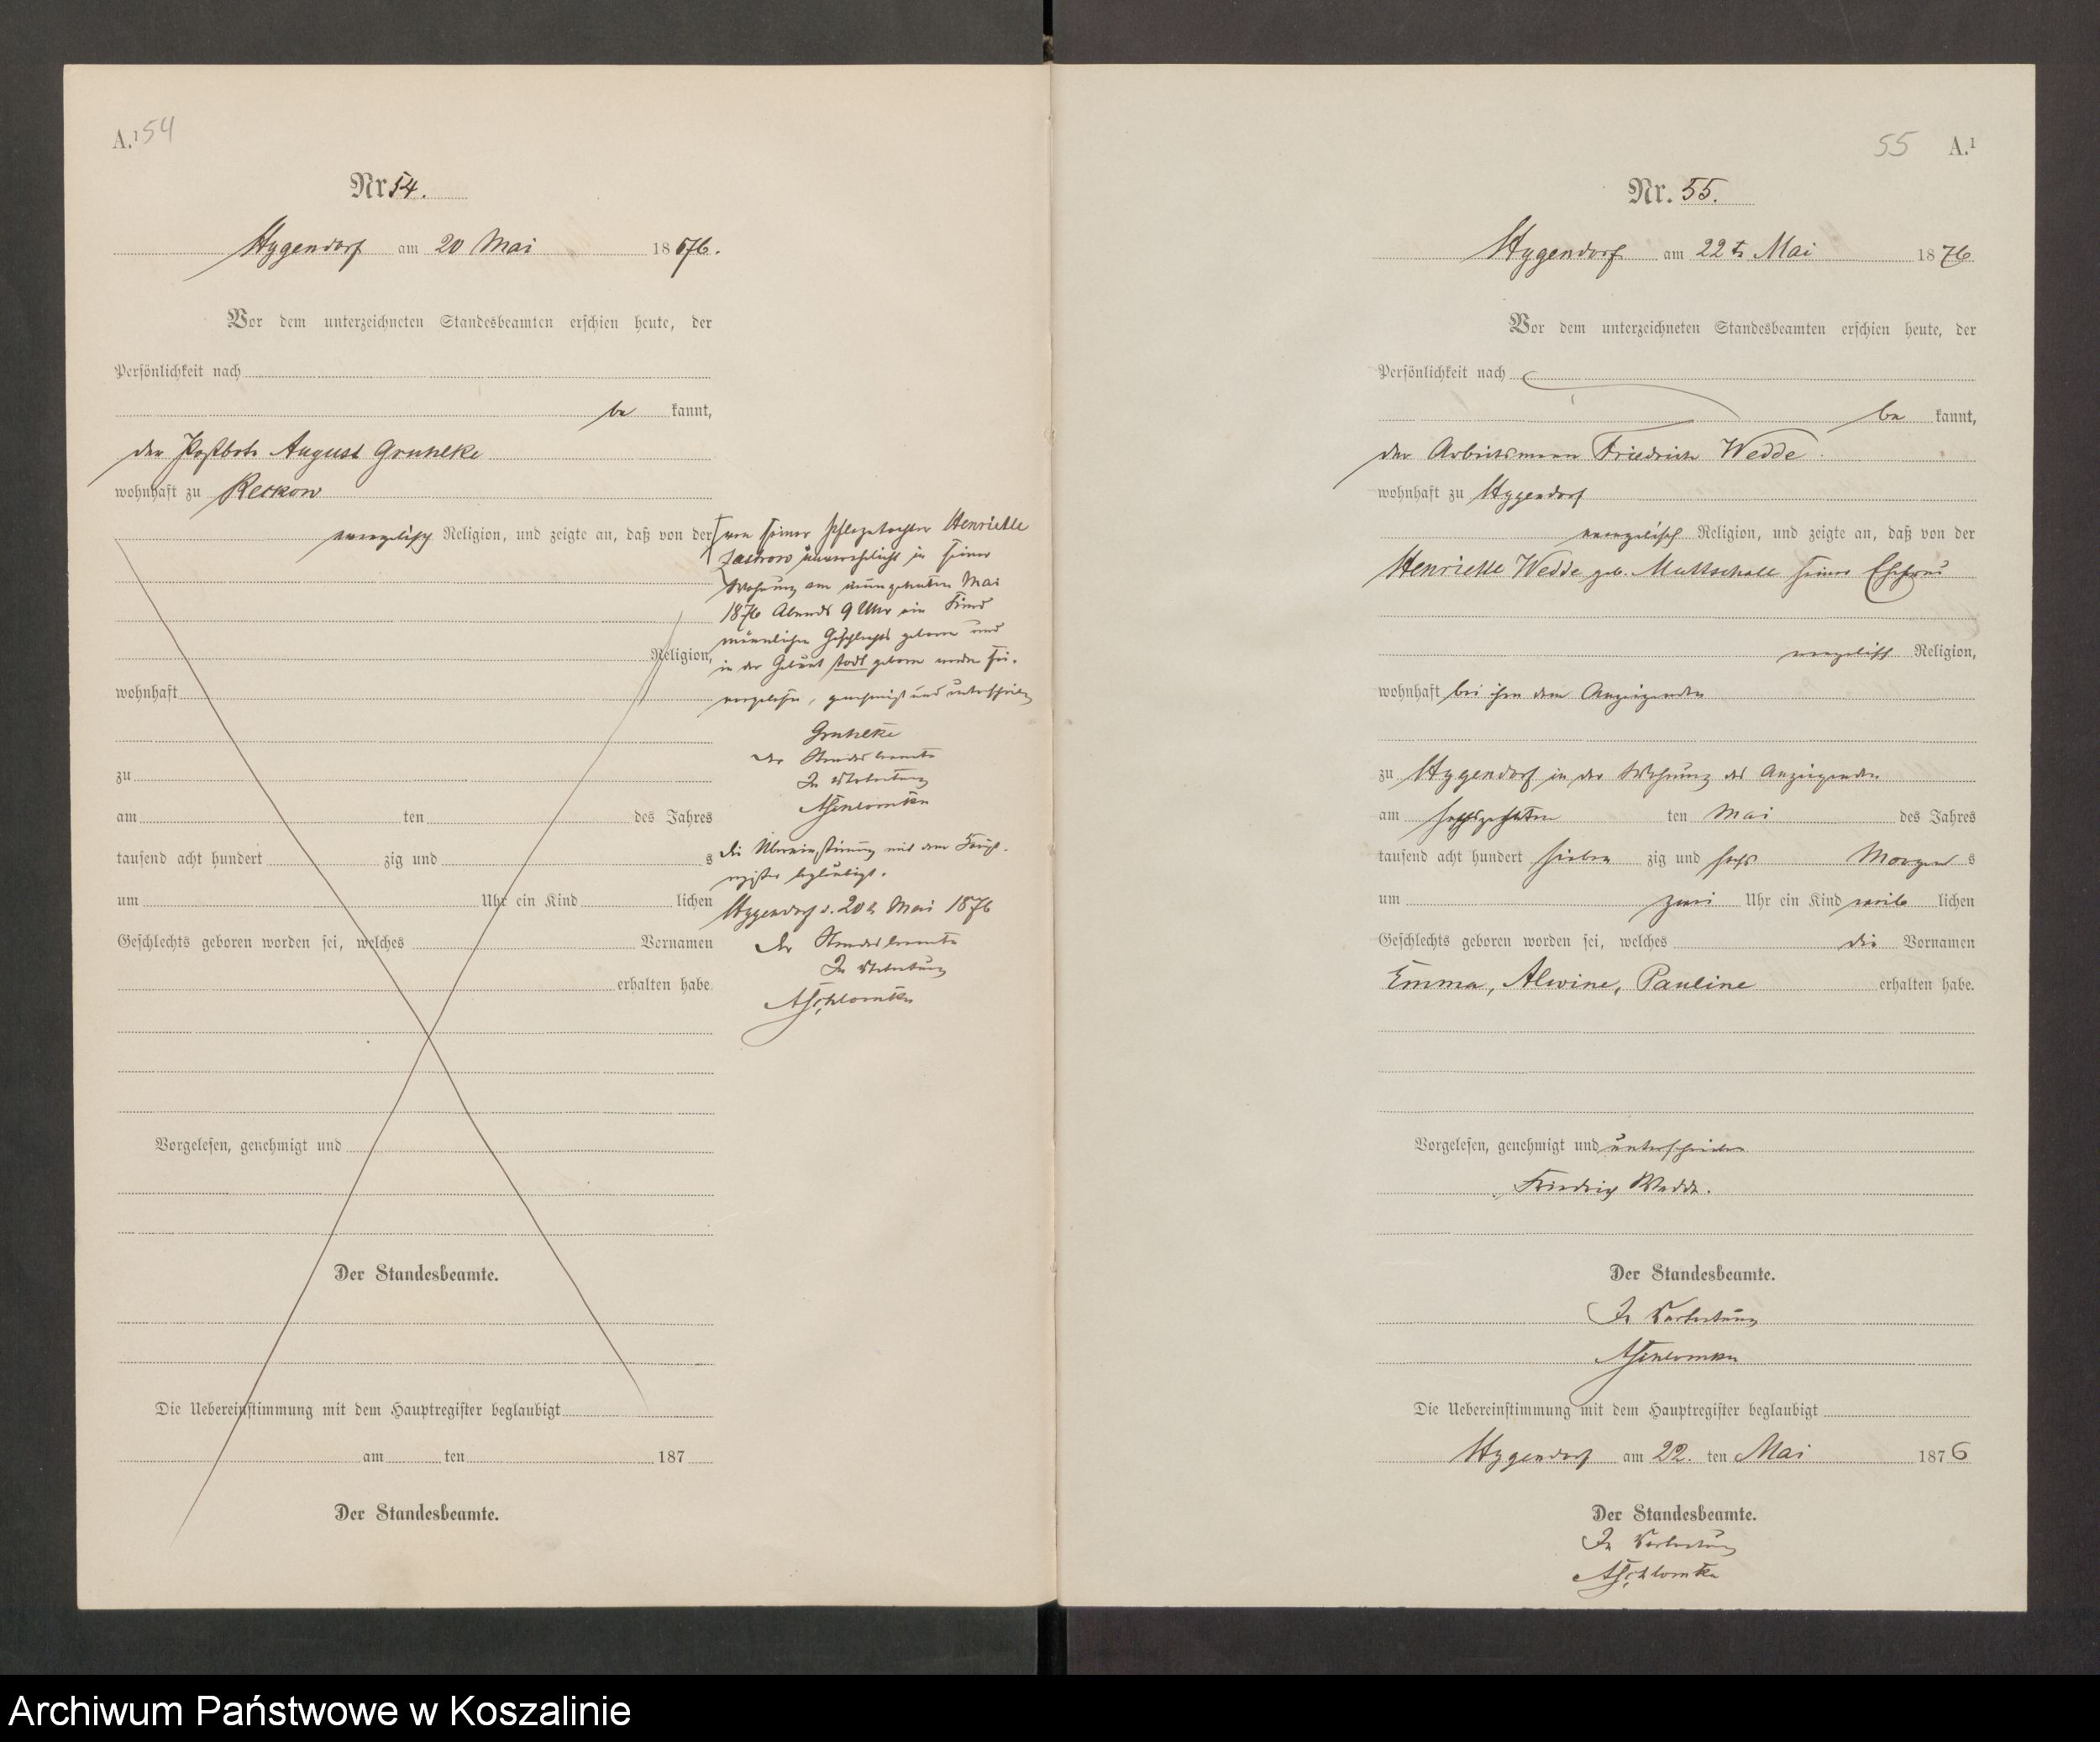 A.¹ 54
Nr 54.
Hygendorf am 20 Mai 1876.
Vor dem unterzeichneten Standesbeamten erschien heute, der
Persönlichkeit nach
be kannt,
der Postbote August Gruhlke
wohnhaft zu Reckow
evangelisch Religion, und zeigte an, daß von der
Religion,
wohnhaft
zu
am ten des Jahres
tausend acht hundert zig und s
um Uhr ein Kind lichen
Geschlechts geboren worden sei, welches Vornamen
erhalten habe.
Vorgelesen, genehmigt und
Der Standesbeamte.
Die Uebereinstimmung mit dem Hauptregister beglaubigt
am ten 187
Der Standesbeamte.
von seiner Pflegetochter Henriette
Zastrow unverehelicht in seiner
Wohnung am neunzehnten Mai
1876 Abends 9 Uhr ein Kind
männlichen Geschlechts geboren und
in der Geburt todt geboren worden sei.
vorgelesen, genehmigt und unterschrieben
Gruhlke
der Standesbeamte
In Vertretung
die Übereinstimmung mit dem Haupt-
register beglaubigt.
Hygendorf d. 20 t Mai 1876
Der Standesbeamte
In Vertretung
55 A.¹
Nr. 55.
Hygendorf am 22 t Mai 1876
Vor dem unterzeichneten Standesbeamten erschien heute, der
Persönlichkeit nach
be kannt,
der Arbeitsmann Friedrich Wedde
wohnhaft zu Hygendorf
evangelisch Religion, und zeigte an, daß von der
Henriette Wedde geb. Muttschall seiner Ehefrau
evangelisch Religion,
wohnhaft bei ihm dem Anzeigenden
zu Hygendorf in der Wohnung des Anzeigenden
am sechszehnten ten Mai des Jahres
tausend acht hundert sieben zig und sechs Morgen s
um zwei Uhr ein Kind weib lichen
Geschlechts geboren worden sei, welches die Vornamen
Emma, Alwine, Pauline erhalten habe.
Vorgelesen, genehmigt und unterschrieben
Friedrich Wedde.
Der Standesbeamte.
In Vertretung
Die Uebereinstimmung mit dem Hauptregister beglaubigt
Hygendorf am 22. ten Mai 1876
Der Standesbeamte.
In Vertretung
Archiwum Państwowe w Koszalinie